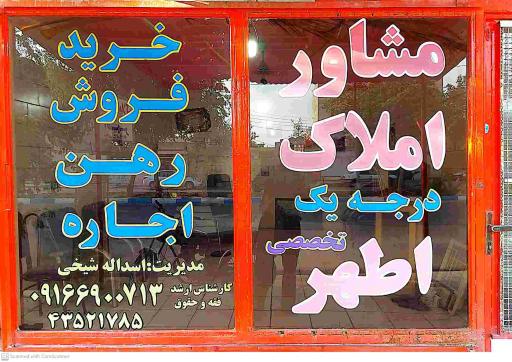 مشاور
املاک
درجه یک
تخصصی
اطهر
خرید
فروش
رهن
اجاره
مدیریت: اسداله شیخی
کارشناس ارشد
فقه و حقوق
۰۹۱۶۶۹۰۰۷۱۳
۴۳۵۲۱۷۸۵
Scanned with CamScanner